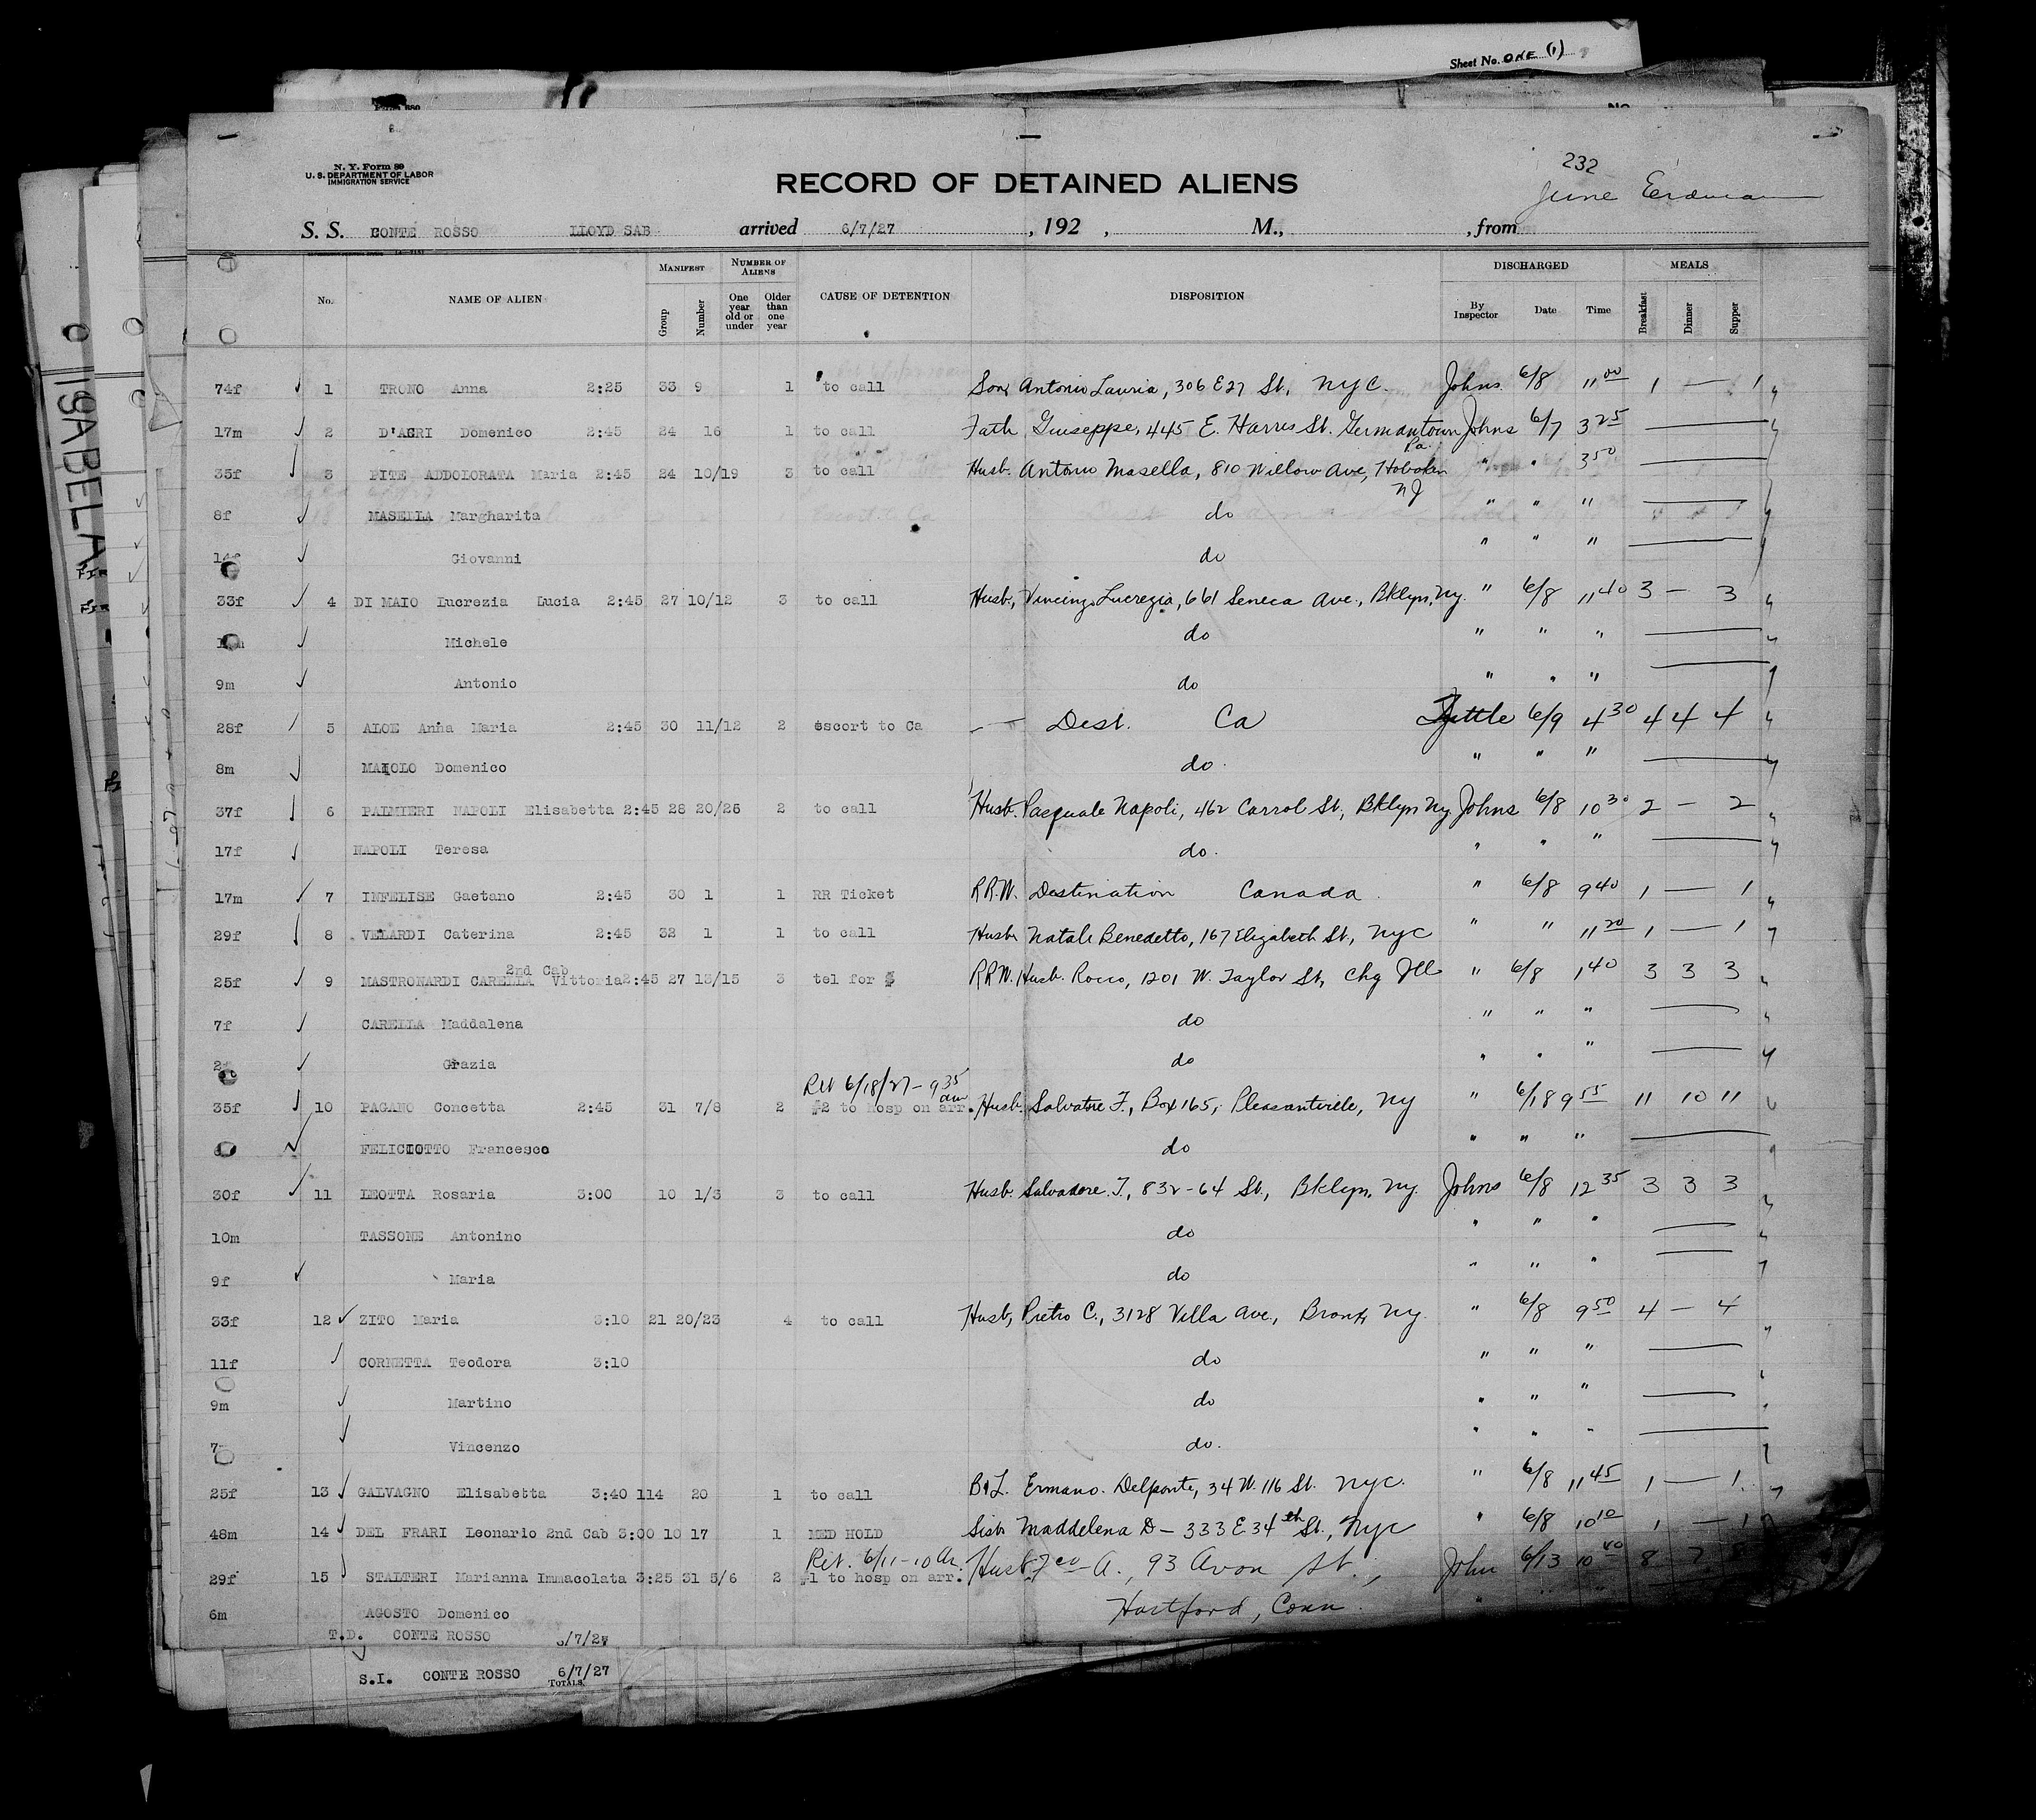 Sheet No. ONE (1)
ISABELA
232
N. Y. Form 89
U. S. DEPARTMENT OF LABOR
IMMIGRATION SERVICE
RECORD OF DETAINED ALIENS
June Erdman
S. S. CONTE ROSSO LLOYD SAB arrived 6/7/27, 192 , M., , from
No. NAME OF ALIEN MANIFEST Group Number NUMBER OF ALIENS One year old or under Older than one year CAUSE OF DETENTION DISPOSITION DISCHARGED By Inspector Date Time MEALS Breakfast Dinner Supper
74f 1 TRONO Anna 2:25 33 9 1 to call Son Antonio Lauria, 306 E 27 St, NYC. Johns 6/8 11 00 1 — 1
17m 2 D'AGRI Domenico 2:45 24 16 1 to call Fath Guiseppe, 445 E. Harris St. Germantown Pa. Johns 6/7 3 25
35f 3 PITE ADDOLORATA Maria 2:45 24 10/19 3 to call Husb. Antonio Masella, 810 Willow Ave, Hoboken NJ " " 3 50
8f MASELLA Margharita do " " "
14f Giovanni do " " "
33f 4 DI MAIO Lucrezia Lucia 2:45 27 10/12 3 to call Husb, Vincenzo Lucrezia, 661 Seneca Ave., Bklyn, Ny. " 6/8 11 40 3 — 3
Michele do " " "
9m Antonio do " " "
28f 5 ALOE Anna Maria 2:45 30 11/12 2 escort to Ca — Dest. Ca Tuttle 6/9 4 30 4 4 4
8m MAIOLO Domenico do. " " "
37f 6 PALMIERI NAPOLI Elisabetta 2:45 28 20/26 2 to call Husb. Pasquale Napoli, 462 Carrol St, Bklyn Ny. Johns 6/8 10 30 2 — 2
17f NAPOLI Teresa do. " " "
17m 7 INFELISE Gaetano 2:45 30 1 1 RR Ticket RR.W. Destination Canada. " 6/8 9 40 1 — 1
29f 8 VELARDI Caterina 2:45 32 1 1 to call Husb Natale Benedetto, 167 Elizabeth St, NYC " " 11 20 1 — 1
25f 9 MASTRONARDI CARELLA 2nd Cab Vittoria 2:45 27 13/15 3 tel for $ RRW. Husb. Rocco, 1201 W. Taylor St, Chg Ill " 6/8 1 40 3 3 3
7f CARELLA Maddalena do " " "
Grazia do " " "
Ret 6/18/27 - 9 35 am
35f 10 PAGANO Concetta 2:45 31 7/8 2 #2 to hosp on arr. Husb. Salvatore F., Box 165, Pleasantville, NY " 6/18 9 55 11 10 11
FELICIOTTO Francesco do " " "
30f 11 LEOTTA Rosaria 3:00 10 1/3 3 to call Husb. Salvadore. T., 832-64 St., Bklyn, Ny. Johns 6/8 12 35 3 3 3
10m TASSONE Antonino do " " "
9f Maria do " " "
33f 12 ZITO Maria 3:10 21 20/23 4 to call Husb, Pietro C., 3128 Villa Ave., Bronx, Ny. " 6/8 9 50 4 — 4
11f CORNETTA Teodora 3:10 do " " "
9m Martino do " " "
7 Vincenzo do. " " "
25f 13 GALVAGNO Elisabetta 3:40 114 20 1 to call B.I.L. Ermano. Delponte, 34 W. 116 St. NYC. " 6/8 11 45 1 — 1
48m 14 DEL FRARI Leonario 2nd Cab 3:00 10 17 1 MED HOLD Sist Maddelena D — 333 E 34th St., NYC " 6/8 10 10 1 — 1
Ret. 6/11 - 10 Am.
29f 15 STALTERI Marianna Immacolata 3:25 31 5/6 2 #1 to hosp on arr. Husb. Fco A., 93 Avon St., John 6/13 10 40 8 7 8
6m AGOSTO Domenico Hartford, Conn. " " "
T.D. CONTE ROSSO 6/7/27
S.I. CONTE ROSSO 6/7/27
TOTALS